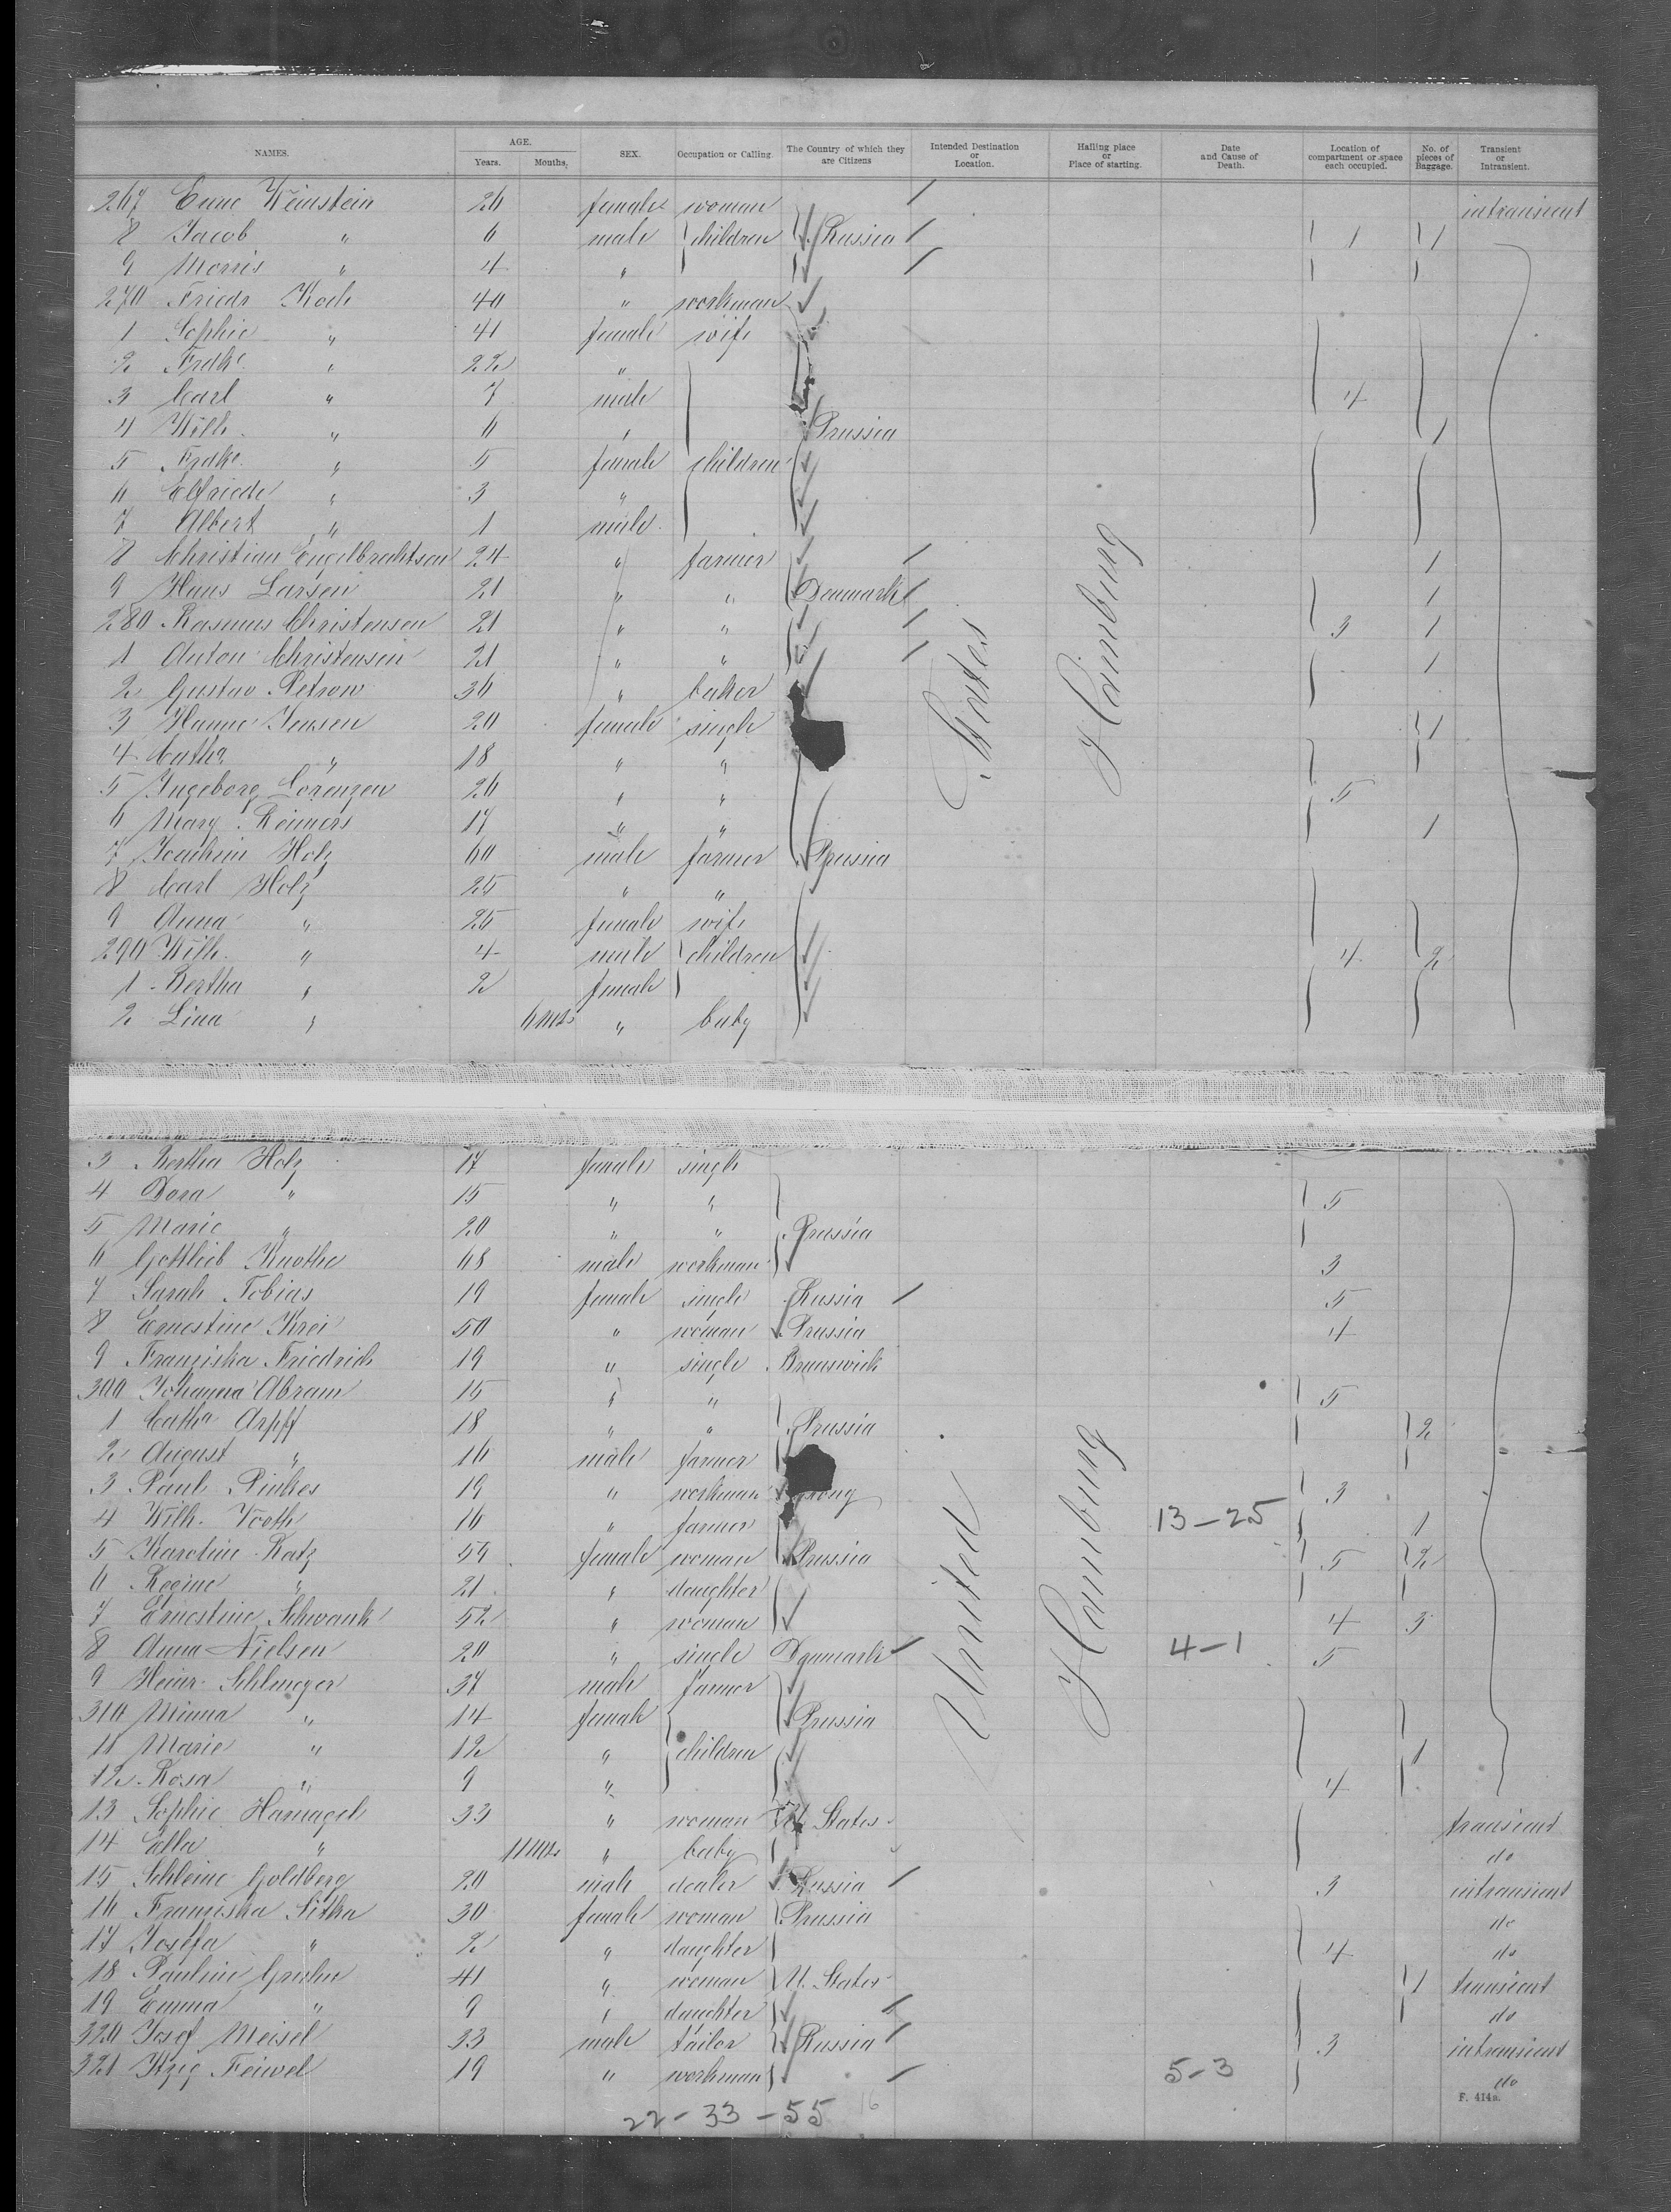 NAMES. AGE. Years. Months. SEX. Occupation or Calling The Country of which they are Citizens Intended Destination or Location. Hailing place or Place of starting. Date and Cause of Death. Location of compartment or space each occupied. No. of pieces of Baggage. Transient or Intransient.
267 Weinstein 26 female woman intransient
8 Jacob " 6 male children Russia 1 1
9 Morris " 4 "
270 Friedr Koch 40 " workman
1 Sophie " 41 female wife
2 Fredke " 22 "
3 Carl " 7 male 4
4 Wilh. " 6 " Prussia 1
5 Frdke " 5 female children
6 Elfriede " 3 "
7 Albert " 1 male
8 Christian Engelbrechtsen 24 " farmer 1
9 Hans Larsen 21 " " Denmark 1
280 Rasmus Christensen 21 " " 3 1
1 Anton Christensen 21 " " 1
2 Gustav Petrow 36 " baker
3 Hanne Jensen 20 female single 1
4 Catha " 18 " "
5 Ingeborg Lorenzen 26 " " 5
6 Marg. Reimers 17 " " 1
7 Joachim Holz 60 male farmer Prussia
8 Carl Holz 25 " "
9 Anna " 25 female wife
290 Wilh. " 4 male children 4 2
1 Bertha " 2 female
2 Lina " 6 mts " baby
States
Hamburg
3 Bertha Holz 17 female single
4 Dora " 15 " " 5
5 Marie " 20 " " Prussia
6 Gottlieb Knothe 68 male workman 3
7 Sarah Tobias 19 female single Russia 5
8 Ernestine Krei 50 " woman Prussia 4
9 Franziska Friedrich 19 " single Brunswick
300 Johanna Abram 15 " " 5
1 Catha Arpff 18 " " Prussia 2
2 August " 16 male farmer
3 Paul Pinkes 19 " workman 3
4 Wilh. Vooth 16 " farmer 13-25 1
5 Karoline Katz 59 female woman Prussia 5 2
6 Regine " 21 " daughter
7 Ernestine Schwank 52 " woman 4 3
8 Anna Nielsen 20 " single Denmark 4-1 5
9 Heinr. Schlenger 37 male farmer
310 Minna " 14 female Prussia
11 Marie " 12 " children 1
12 Rosa " 9 " 4
13 Sophie Harnagel 33 " woman U. States transient
14 Ella " 11 mts " baby do
15 Goldberg 20 male dealer Russia 3 intransient
16 Franziska Sitka 30 female woman Prussia do
17 Josefa " 2 " daughter 4 do
18 Pauline Gruhn 41 " woman U. States 1 transient
19 Emma " 9 " daughter do
320 Josef Meisel 33 male tailor Russia 3 intransient
321 Feiwel 19 " workman 5-3 do
United
Hamburg
F. 414a.
22-33-55 16